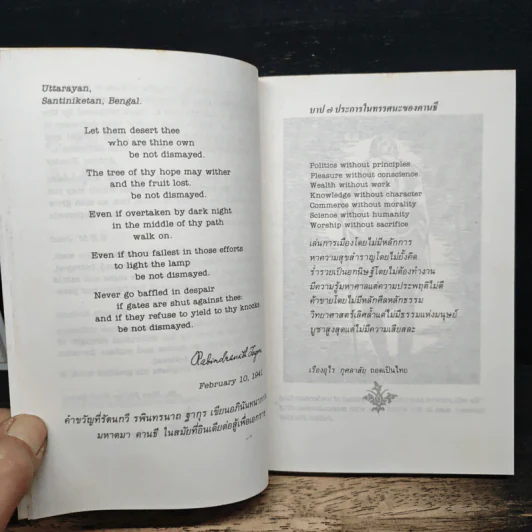 Uttarayan,
Santiniketan, Bengal.
Let them desert thee
who are thine own
be not dismayed.
The tree of thy hope may wither
and the fruit lost.
be not dismayed.
Even if overtaken by dark night
in the middle of thy path
walk on.
Even if thou failest in those efforts
to light the lamp
be not dismayed.
Never go baffled in despair
if gates are shut against thee
and if they refuse to yield to thy knocks
be not dismayed.
Rabindranath Tagore
February 10, 1941
คำขวัญที่รัตนกวี รพินทรนาถ ฐากุร เขียนอภินันทนาการ
มหาตมา คานธี ในสมัยที่อินเดียต่อสู้เพื่อเอกราช
บาป ๗ ประการในทรรศนะของคานธี
Politics without principles
Pleasure without conscience
Wealth without work
Knowledge without character
Commerce without morality
Science without humanity
Worship without sacrifice
เล่นการเมืองโดยไม่มีหลักการ
หาความสุขสำราญโดยไม่ยั้งคิด
ร่ำรวยเป็นอกนิษฐ์โดยไม่ต้องทำงาน
มีความรู้มหาศาลแต่ความประพฤติไม่ดี
ค้าขายโดยไม่มีหลักศีลหลักธรรม
วิทยาศาสตร์เลิศล้ำแต่ไม่มีธรรมแห่งมนุษย์
บูชาสูงสุดแต่ไม่มีความเสียสละ
เรืองอุไร กุศลาสัย ถอดเป็นไทย